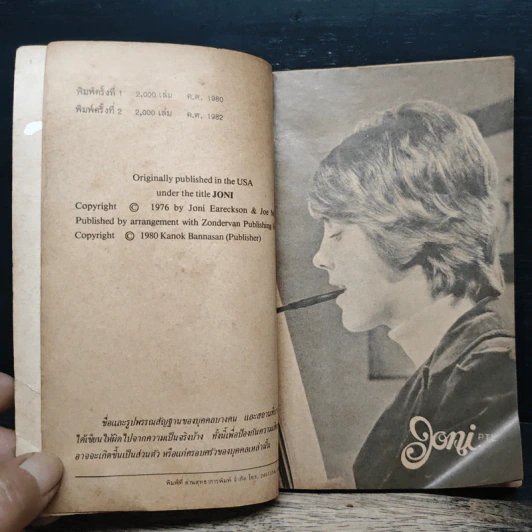 พิมพ์ครั้งที่ 1 2,000 เล่ม ค.ศ. 1980
พิมพ์ครั้งที่ 2 2,000 เล่ม ค.ศ. 1982
Originally published in the USA
under the title JONI
Copyright © 1976 by Joni Eareckson & Joe
Published by arrangement with Zondervan Publishing
Copyright © 1980 Kanok Bannasan (Publisher)
ชื่อและรูปพรรณสัญฐานของบุคคลบางคน และสถานที่
ได้เขียนให้ผิดไปจากความเป็นจริงบ้าง ทั้งนี้เพื่อป้องกันความ
อาจจะเกิดขึ้นเป็นส่วนตัว หรือแก่ครอบครัวของบุคคลเหล่านั้น
พิมพ์ที่
Joni